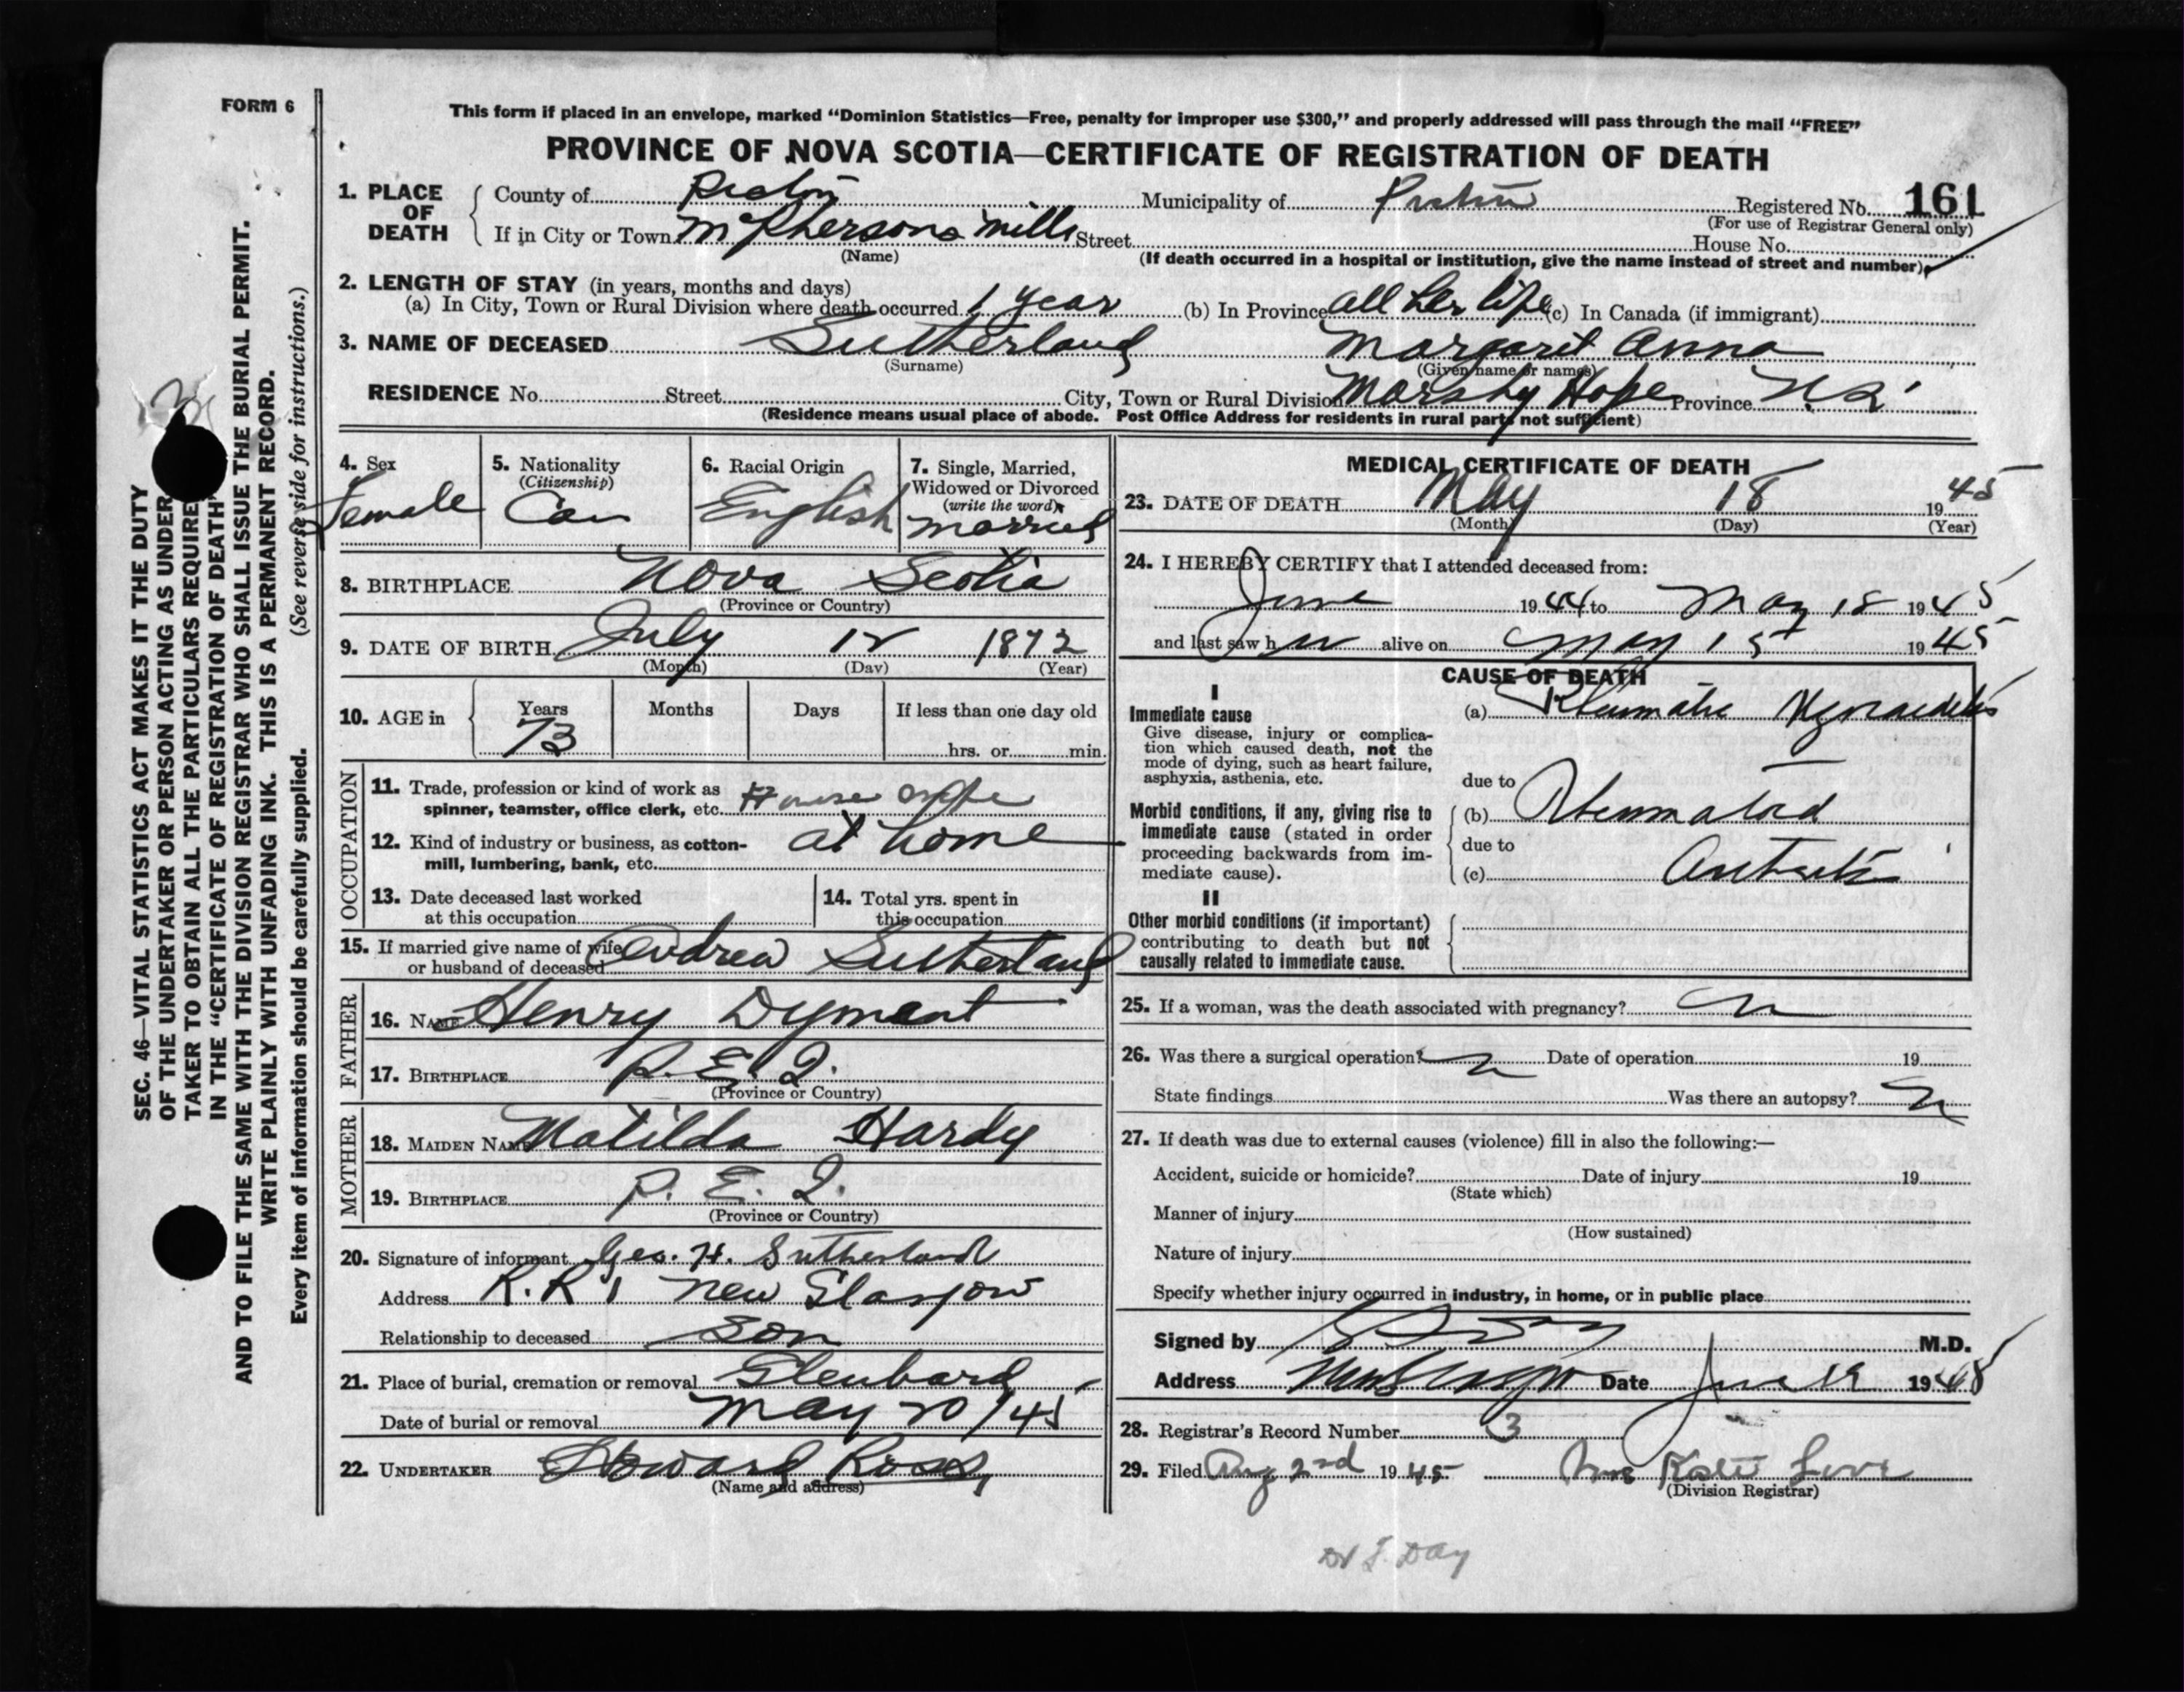 FORM 6
This form if placed in an envelope, marked “Dominion Statistics—Free, penalty for improper use $300,” and properly addressed will pass through the mail “FREE”
PROVINCE OF NOVA SCOTIA—CERTIFICATE OF REGISTRATION OF DEATH
1. PLACE OF DEATH
County of Pictou Municipality of Pictou Registered No. 161
(For use of Registrar General only)
If in City or Town McPhersons Mills Street House No.
(Name)
(If death occurred in a hospital or institution, give the name instead of street and number)
2. LENGTH OF STAY (in years, months and days)
(a) In City, Town or Rural Division where death occurred 1 year (b) In Province all her life (c) In Canada (if immigrant)
3. NAME OF DECEASED Sutherland Margaret Anna
(Surname) (Given name or names)
RESIDENCE No. Street City, Town or Rural Division Marshy Hope Province N.S.
(Residence means usual place of abode. Post Office Address for residents in rural parts not sufficient)
4. Sex
Female
5. Nationality
(Citizenship)
Can
6. Racial Origin
English
7. Single, Married, Widowed or Divorced
(write the word)
married
8. BIRTHPLACE Nova Scotia
(Province or Country)
9. DATE OF BIRTH July 12 1872
(Month) (Day) (Year)
10. AGE in
Years Months Days If less than one day old
73 hrs. or min.
OCCUPATION
11. Trade, profession or kind of work as
spinner, teamster, office clerk, etc. House wife
12. Kind of industry or business, as cotton-
mill, lumbering, bank, etc. at home
13. Date deceased last worked
at this occupation
14. Total yrs. spent in
this occupation
15. If married give name of wife
or husband of deceased Andrew Sutherland
FATHER
16. NAME Henry Dymant
17. BIRTHPLACE P.E.I.
(Province or Country)
MOTHER
18. MAIDEN NAME Matilda Hardy
19. BIRTHPLACE P.E.I.
(Province or Country)
20. Signature of informant Geo. H. Sutherland
Address R.R 1 New Glasgow
Relationship to deceased Son
21. Place of burial, cremation or removal Glenbard
Date of burial or removal May 20/45
22. UNDERTAKER Howard Ross,
(Name and address)
MEDICAL CERTIFICATE OF DEATH
23. DATE OF DEATH May 18 1945
(Month) (Day) (Year)
24. I HEREBY CERTIFY that I attended deceased from:
June 1944 to May 18 1945
and last saw her alive on May 15 1945
CAUSE OF DEATH
I
Immediate cause
Give disease, injury or complica-
tion which caused death, not the
mode of dying, such as heart failure,
asphyxia, asthenia, etc.
(a) Rheumatic Myocarditis
due to
Morbid conditions, if any, giving rise to
immediate cause (stated in order
proceeding backwards from im-
mediate cause).
(b) Rheumatoid
due to
(c) Arthritis
II
Other morbid conditions (if important)
contributing to death but not
causally related to immediate cause.
25. If a woman, was the death associated with pregnancy? n
26. Was there a surgical operation? n Date of operation 19
State findings Was there an autopsy? n
27. If death was due to external causes (violence) fill in also the following:—
Accident, suicide or homicide? Date of injury 19
(State which)
Manner of injury
(How sustained)
Nature of injury
Specify whether injury occurred in industry, in home, or in public place
Signed by M.D.
Address New Glasgow Date June 19 1945
28. Registrar's Record Number 3
29. Filed Aug 2nd 1945 Mrs Katie Love
(Division Registrar)
Dr J. Day
SEC. 46—VITAL STATISTICS ACT MAKES IT THE DUTY
OF THE UNDERTAKER OR PERSON ACTING AS UNDER
TAKER TO OBTAIN ALL THE PARTICULARS REQUIRE
IN THE “CERTIFICATE OF REGISTRATION OF DEATH”
AND TO FILE THE SAME WITH THE DIVISION REGISTRAR WHO SHALL ISSUE THE BURIAL PERMIT.
WRITE PLAINLY WITH UNFADING INK. THIS IS A PERMANENT RECORD.
Every item of information should be carefully supplied. (See reverse side for instructions.)